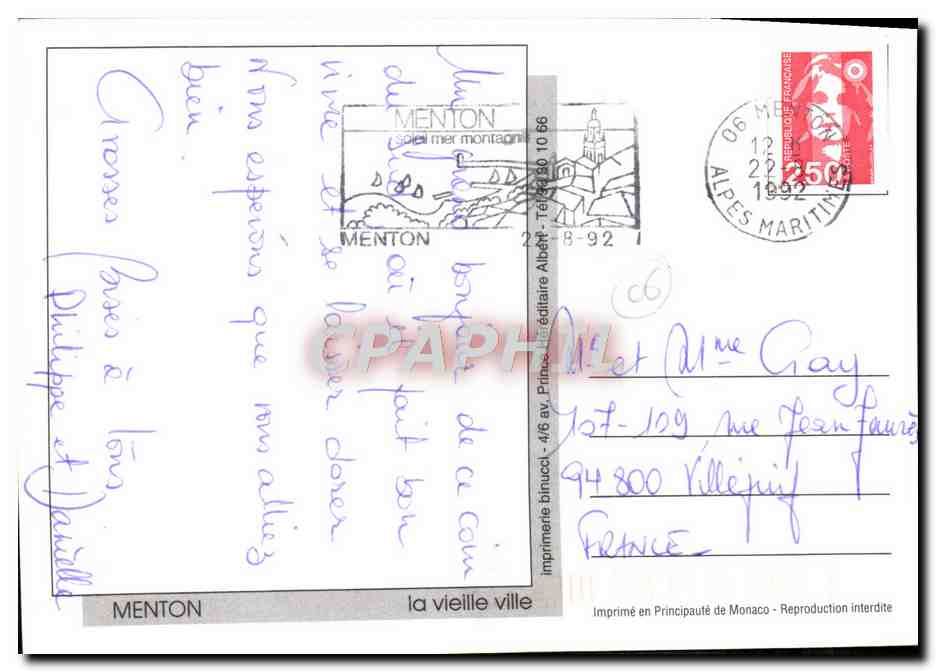 Un grand bonjour de ce coin
du sud où il fait bon
vivre et se laisser dorer
Nous espérons que vous alliez
bien
Grosses bises à tous
Philippe et Danielle
MENTON
soleil mer montagne
MENTON 22-8-92
06 MENTON
12 H
22-8
1992
ALPES MARITIMES
REPUBLIQUE FRANÇAISE
2,50
LA POSTE
C6
CPAPHIL
Mr et Mme Gay
107-109 rue Jean Jaurès
94800 Villejuif
FRANCE
imprimerie binucci - 4/6 av. Prince Héréditaire Albert - Tél. 93 30 10 66
MENTON
la vieille ville
Imprimé en Principauté de Monaco - Reproduction interdite